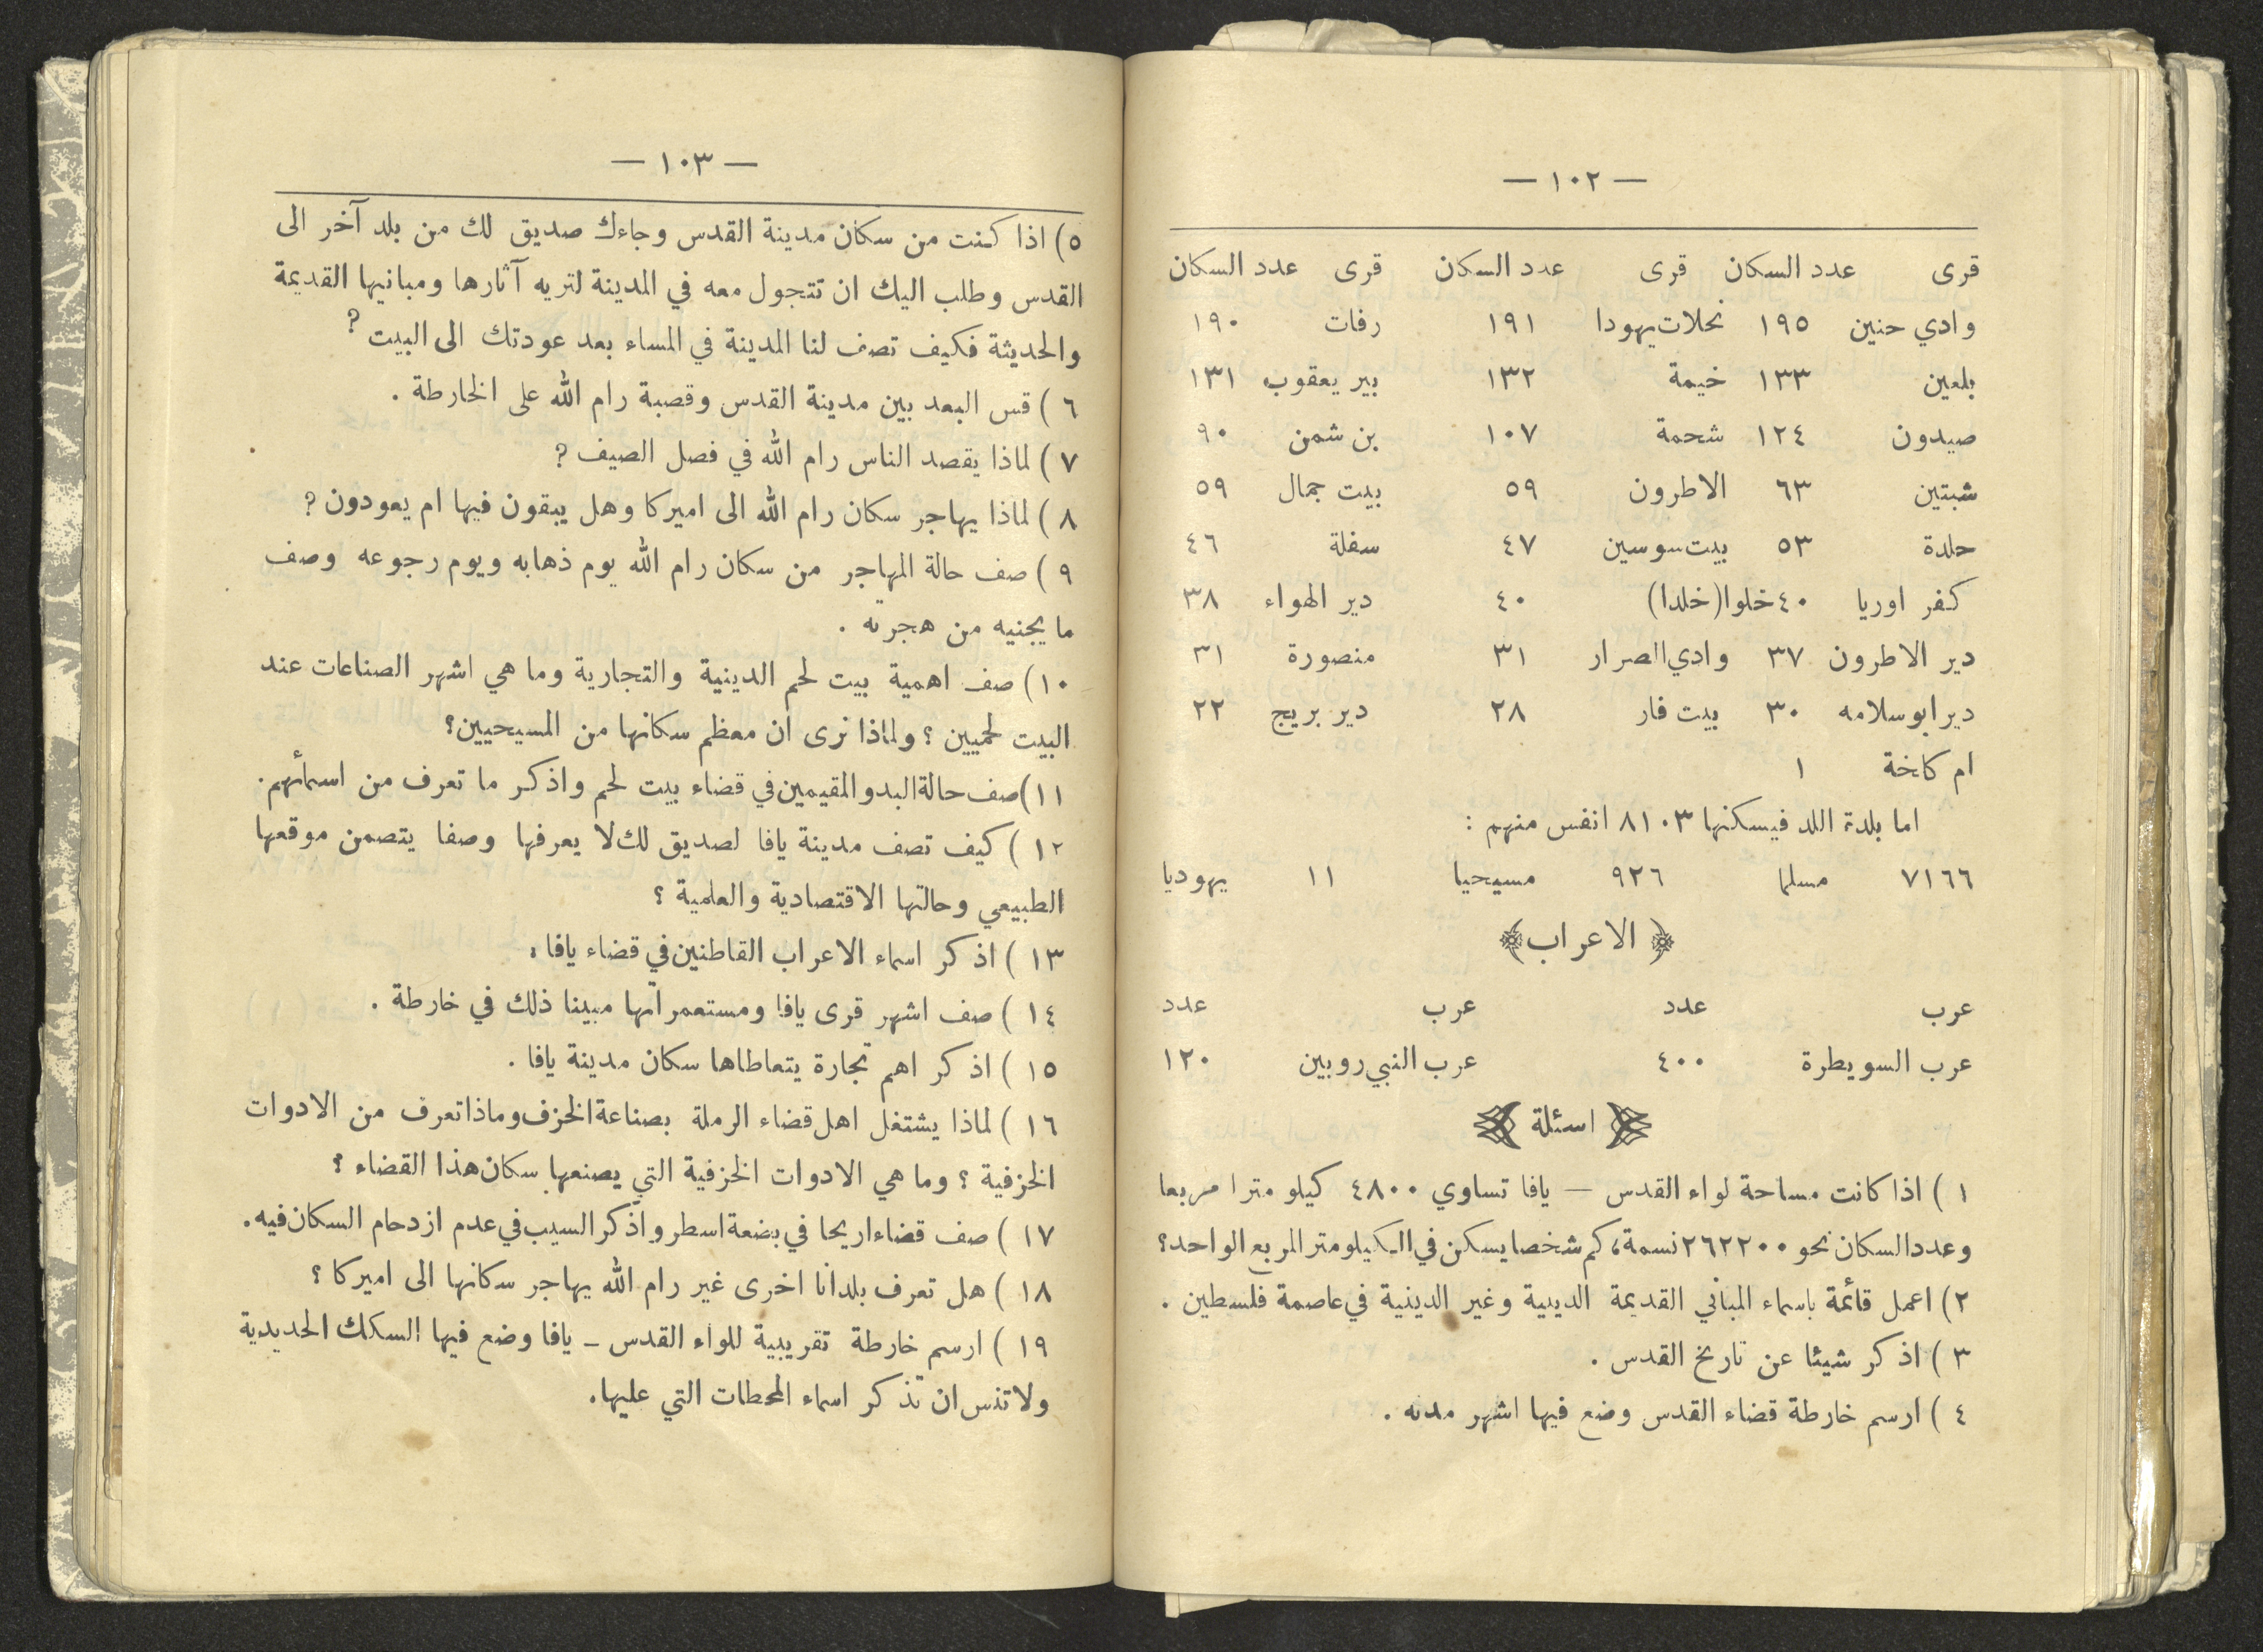 — ١٠٢ —
قرى عدد السكان قرى عدد السكان قرى عدد السكان
وادي حنين ١٩٥ نحلات يهودا ١٩١ رفات ١٩٠
بلعين ١٣٣ خيمة ١٣٢ بير يعقوب ١٣١
صيدون ١٢٤ شحمة ١٠٧ بن شمن ٩٠
شبتين ٦٣ الاطرون ٥٩ بيت جمال ٥٩
حلدة ٥٣ بيت سوسين ٤٧ سفلة ٤٦
كفر اوريا ٤٠ خلوا (خلدا) ٤٠ دير الهواء ٣٨
دير الاطرون ٣٧ وادي الصرار ٣١ منصورة ٣١
دير ابو سلامه ٣٠ بيت فار ٢٨ دير بريج ٢٢
ام كاخة ١
اما بلدة اللد فيسكنها ٨١٠٣ انفس منهم :
٧١٦٦ مسلما ٩٢٦ مسيحيا ١١ يهوديا
﴿ الاعراب ﴾
عرب عدد عرب عدد
عرب السويطرة ٤٠٠ عرب النبي روبين ١٢٠
اسئلة
١ ) اذا كانت مساحة لواء القدس — يافا تساوي ٤٨٠٠ كيلو مترا مربعا
وعدد السكان نحو ٢٦٢٢٠٠ نسمة، كم شخصا يسكن في الكيلومتر المربع الواحد؟
٢ ) اعمل قائمة باسماء المباني القديمة الدينية وغير الدينية في عاصمة فلسطين .
٣ ) اذكر شيئا عن تاريخ القدس .
٤ ) ارسم خارطة قضاء القدس وضع فيها اشهر مدنه .
— ١٠٣ —
٥ ) اذا كنت من سكان مدينة القدس وجاءك صديق لك من بلد آخر الى
القدس وطلب اليك ان تتجول معه في المدينة لتريه آثارها ومبانيها القديمة
والحديثة فكيف تصف لنا المدينة في المساء بعد عودتك الى البيت ?
٦ ) قس البعد بين مدينة القدس وقصبة رام الله على الخارطة .
٧ ) لماذا يقصد الناس رام الله في فصل الصيف ?
٨ ) لماذا يهاجر سكان رام الله الى اميركا وهل يبقون فيها ام يعودون ?
٩ ) صف حالة المهاجر من سكان رام الله يوم ذهابه ويوم رجوعه وصف
ما يجنيه من هجرته .
١٠ ) صف اهمية بيت لحم الدينية والتجارية وما هي اشهر الصناعات عند
البيت لحميين ؟ ولماذا نرى ان معظم سكانها من المسيحيين؟
١١ ) صف حالة البدو المقيمين في قضاء بيت لحم واذكر ما تعرف من اسمائهم .
١٢ ) كيف تصف مدينة يافا لصديق لك لا يعرفها وصفا يتضمن موقعها
الطبيعي وحالتها الاقتصادية والعلمية ؟
١٣ ) اذكر اسماء الاعراب القاطنين في قضاء يافا .
١٤ ) صف اشهر قرى يافا ومستعمراتها مبينا ذلك في خارطة .
١٥ ) اذكر اهم تجارة يتعاطاها سكان مدينة يافا .
١٦ ) لماذا يشتغل اهل قضاء الرملة بصناعة الخزف وماذا تعرف من الادوات
الخزفية ؟ وما هي الادوات الخزفية التي يصنعها سكان هذا القضاء ؟
١٧ ) صف قضاء اريحا في بضعة اسطر واذكر السبب في عدم ازدحام السكان فيه .
١٨ ) هل تعرف بلدانا اخرى غير رام الله يهاجر سكانها الى اميركا ؟
١٩ ) ارسم خارطة تقريبية للواء القدس – يافا وضع فيها السكك الحديدية
ولا تنس ان تذكر اسماء المحطات التي عليها .